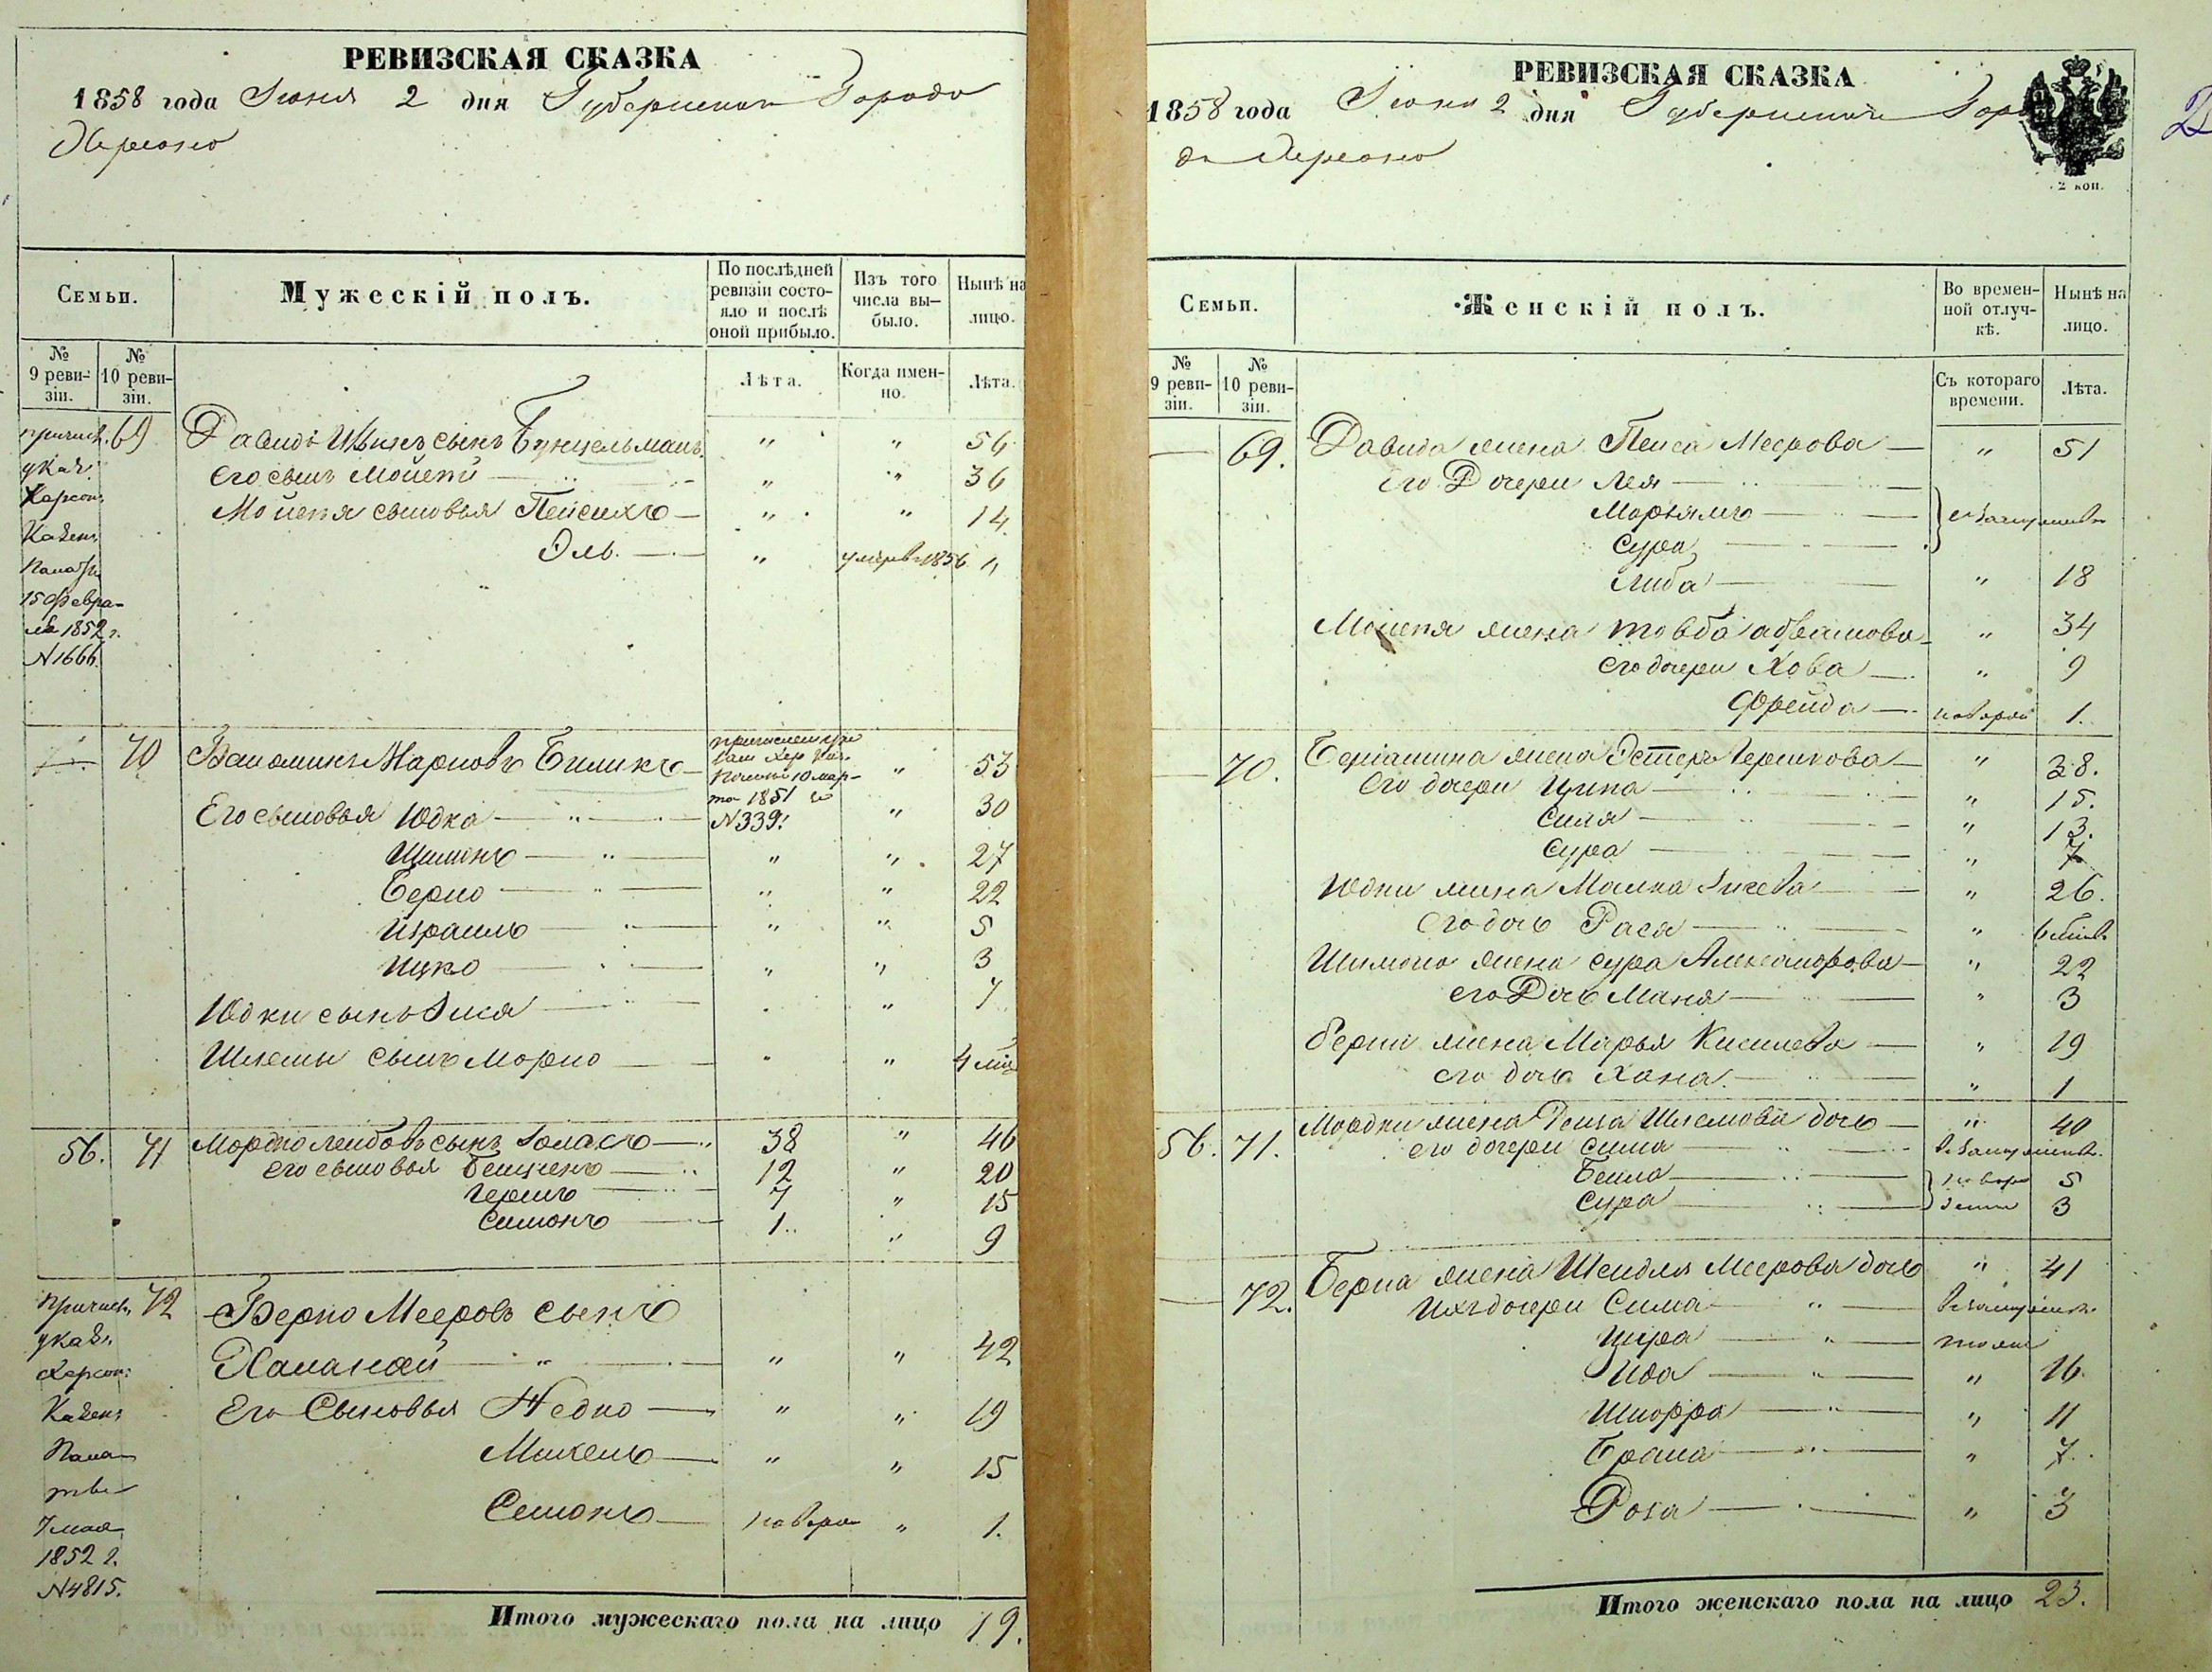 РЕВИЗСКАЯ СКАЗКА
1858 года Июня 2 дня Губернскаго Города
Херсона
Семьи.
Мужескій полъ.
По послѣдней ревизіи состояло и послѣ оной прибыло.
Изъ того числа выбыло.
Нынѣ на лицо.
№ 9 ревизіи.
№ 10 ревизіи.
Лѣта.
Когда именно.
Лѣта.
причисл. 69 Давидъ сынъ Бунцельманъ " " 56
указ. его сынъ Мойсей " " 36
Херсон. Мойсея сыновья Пейсихъ " " 14
Казен. Эль. " умеръ 1856 "
Палаты
15 Февра-
ля 1852 г.
N 1666.
70 Вениаминъ Марковъ Биликъ " 53
причислен ука
Каз. Хер. Каз.
Палаты 10 мар-
та 1851 го
N 339.
Его сыновья Юдка " 30
Шимонъ " " 27
Берко " " 22
Израиль " " 5
Ицко " " 3
Юдки сынъ Зися " 7
Шлемы сынъ Морко " " 4 мѣс
56. 71 Мордко Лейбовъ сынъ 38 " 46
его сыновья Бенционъ 12 " 20
Гершъ 7 " 15
Симонъ 1 " 9
Причисл. 72 Берко Мееровъ сынъ
указ.
Херсон: " " 42
Казен: Его Сыновья Недко " " 19
Пала- Михель " " 15
ты
7 мая Семонъ новорож " 1.
1852 г.
N 4815.
Итого мужескаго пола на лицо 19.
РЕВИЗСКАЯ СКАЗКА
2 коп.
1858 года Июня 2 дня Губернскаго Горо
да Херсона
Семьи.
Женскій полъ.
Во временной отлучкѣ.
Нынѣ на лицо.
№ 9 ревизіи.
№ 10 ревизіи.
Съ котораго времени.
Лѣта.
— 69. Давида жена Пейса Меерова — " 51
Его Дочери Лея
Марьямъ } въ замужествѣ
Сура
Либа " 18
Мойсея жена Товба Абрамова " 34
его дочери Хова " 9
Фрейда новорож 1.
— 70. Бениамина жена Эстеръ Гершкова " 38.
его дочери Ципа " 15.
Сима " 13.
Сура " 7
Юдки жена Малка " 26.
его дочь Рася " 6 мѣс
Шимона жена Сура Александрова " 22
его Дочь Маня " 3
Берки жена Марья Киселева " 19
его дочь Хана. " 1
56. 71. Мордки жена Рейза Шлемова дочь " 40
его дочери Сима въ замужеств.
Бейла } новоро 5
Сура } 3
— 72. Берка жена Шейдля Меерова дочь " 41
Ихъ дочери Сима въ замужеств.
Шира тоже
Ида " 16.
Шпорра " 11
Брана " 7.
Роза " 3
Итого женскаго пола на лицо 23.